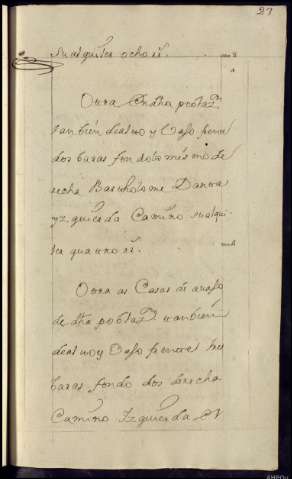 27
su alquiler ocho rs.
Otra En dha poblaz.n
tambien de alto y Vaxo frente
dos baras fondo lo mismo de
recha Bartholome Dantta
yzquierda Camino su alqui
ler quatro rs.
Otra as Casas de avajo
de dha poblaz.n tambien
de alto y Vaxo frente tres
baras fondo dos derecha
Camino Izquierda